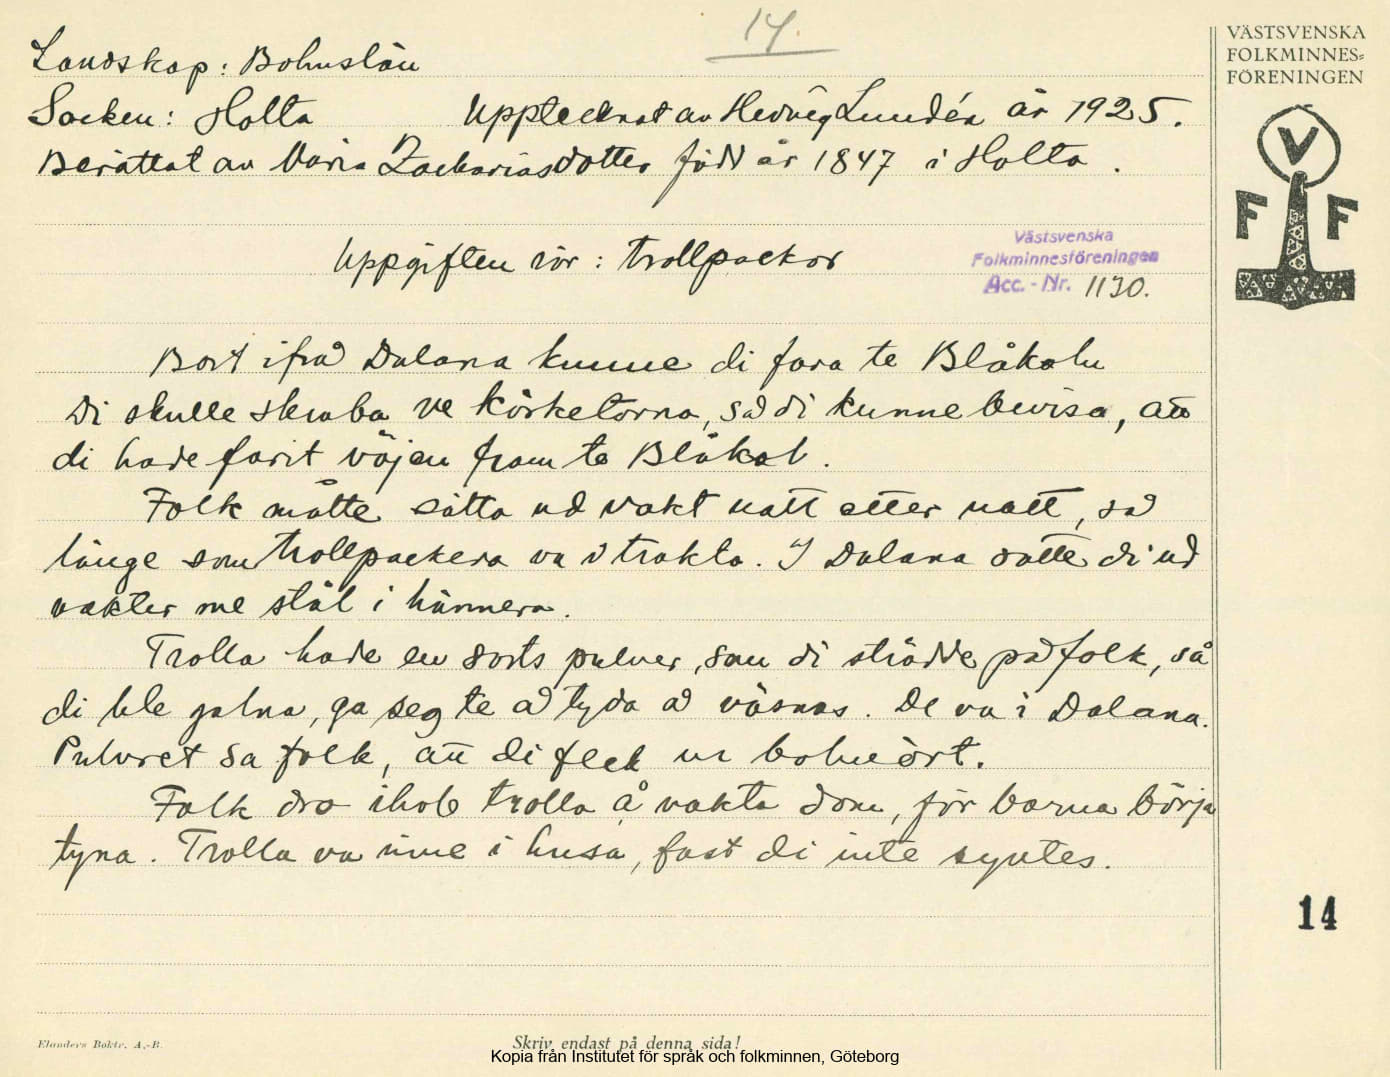 14.
VÄSTSVENSKA
FOLKMINNES=
FÖRENINGEN
V
F F
Landskap: Bohuslän
Socken: Holta Upptecknat av Hedvig Lundén år 1925.
Berättat av Maria Zachariasdotter född år 1847 i Holta.
Uppgiften rör: trollpackor
Västsvenska
Folkminnesföreningen
Acc.-Nr. 1130.
Bort ifrå Dalarna kunne di fara te Blåkoln
Di skulle skraba ve körketorna, så di kunne bevisa, att
di hade farit vöjen fram te Blåkol.
Folk måtte sätta ud vakt natt etter natt, så
länge som trollpackera va i trakta. I Dalana satte di ud
vakter me stål i hännera.
Trolla hade en sorts pulver, som di strödde på folk, så
di ble galna, ga seg te å tyda å väsnas. De va i Dalana.
Pulvret sa folk, att di feck ur bolmeört.
Folk dro ihob trolla å vakta dom, för barna börja
tyna. Trolla va inne i husa, fast di inte syntes.
14
Elanders Boktr. A.-B.
Skriv endast på denna sida!
Kopia från Institutet för språk och folkminnen, Göteborg